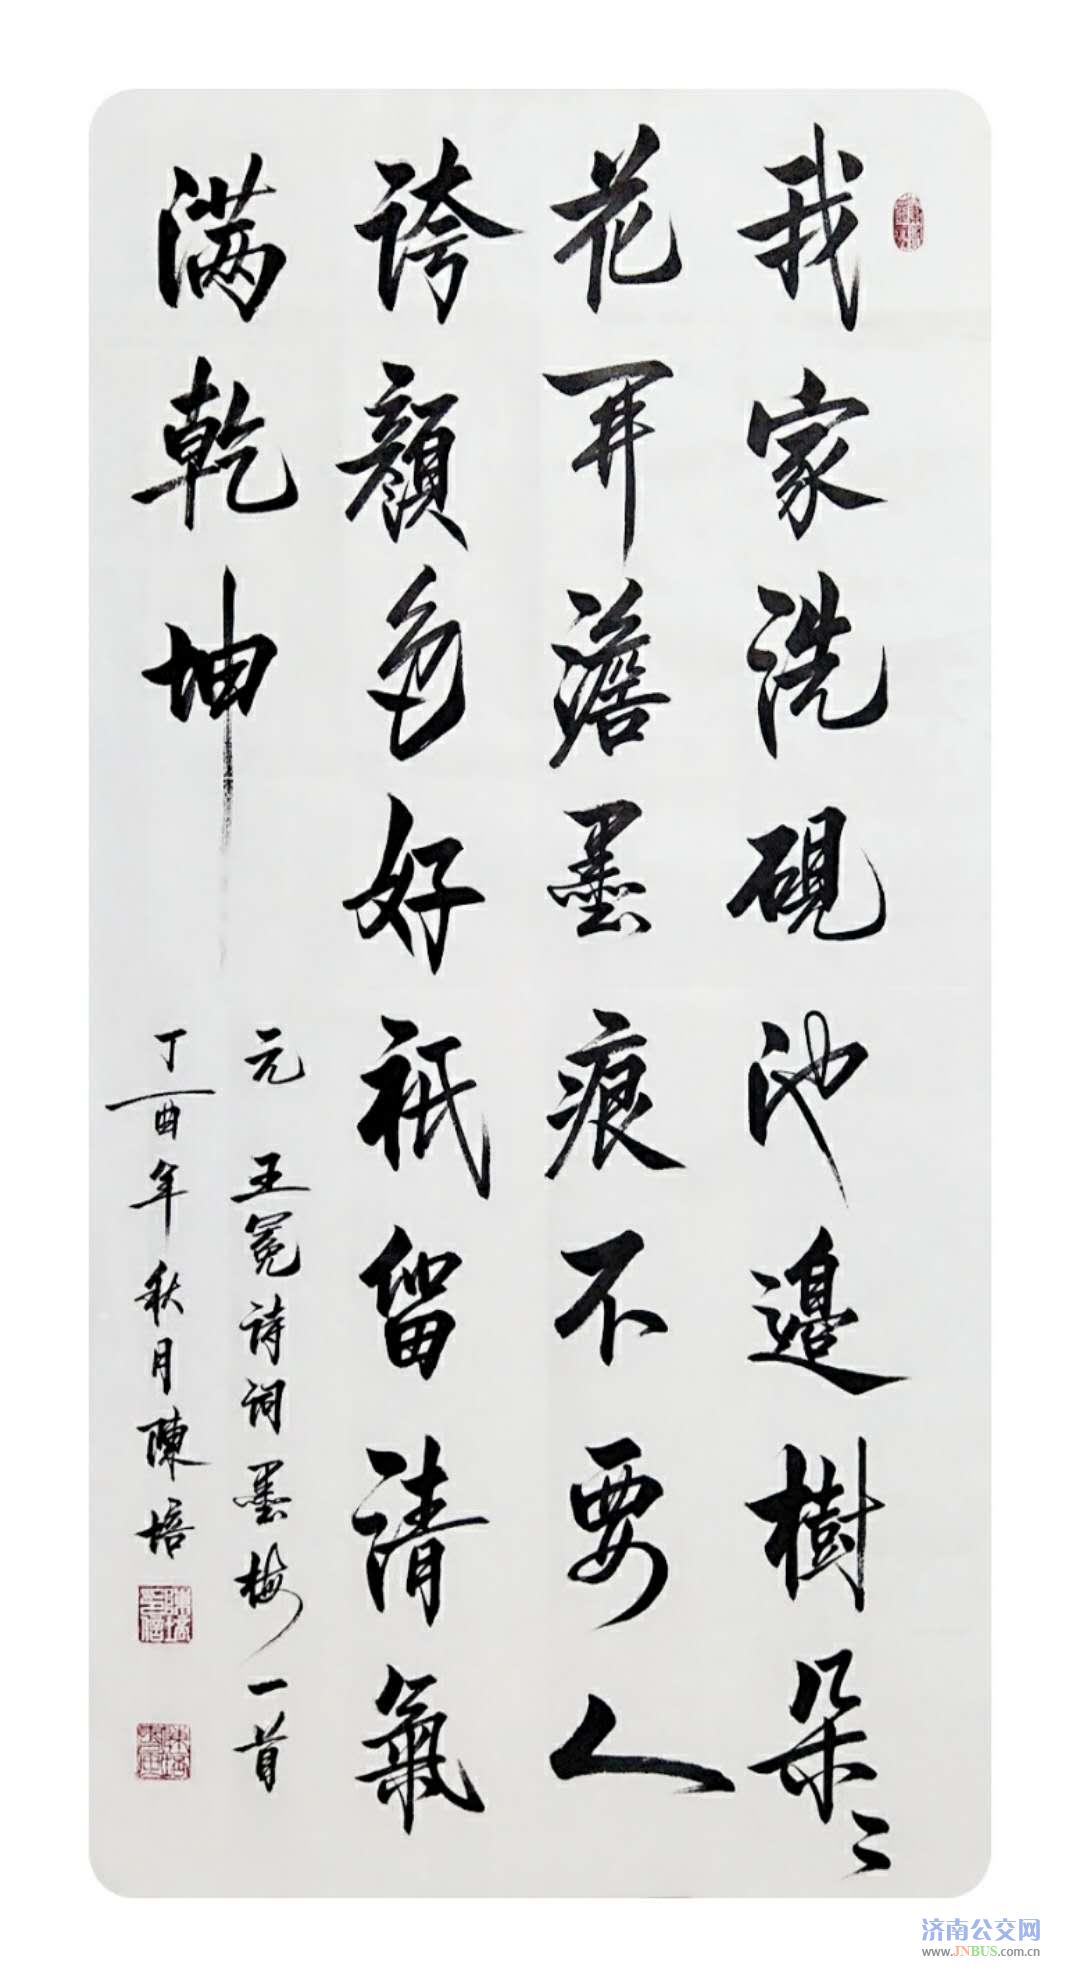 我家洗硯池邊樹朵〻
花开澹墨痕不要人
誇顏色好衹留清氣
满乾坤
元 王冕诗词墨梅一首
丁酉年秋月陳培
济南公交网
www.JNBUS.com.cn